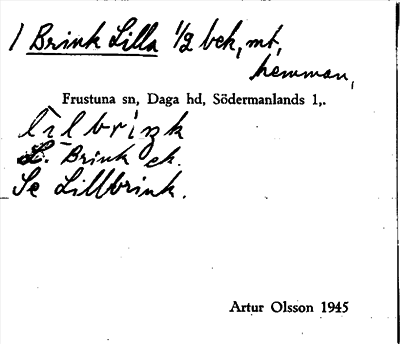 / Brink Lilla 1/2 bek, mt,
hemman,
Frustuna sn, Daga hd, Södermanlands l,.
lìlbriŋk
L. Brink ek.
Se Lillbrink.
Artur Olsson 1945